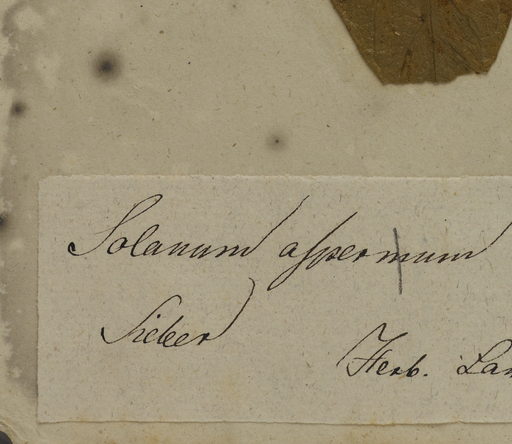 Solanum aspermum
Sieber
Herb. Lam